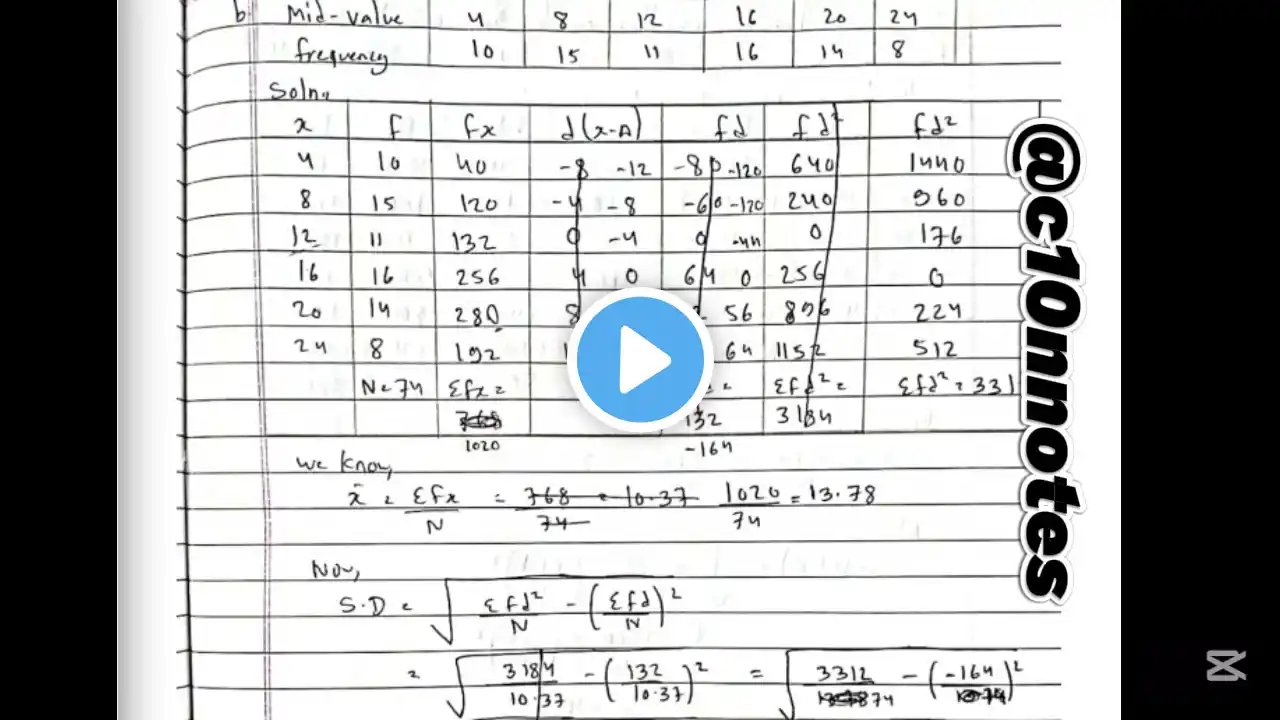 b Mid-value 4 8 12 16 20 24
frequency 10 15 11 16 14 8
Soln,
x f fx d(x-A) fd fd² fd²
4 10 40 -8 -12 -80 -120 640 1440
8 15 120 -4 -8 -60 -120 240 960
12 11 132 0 -4 0 -44 0 176
16 16 256 4 0 64 0 256 0
20 14 280 8 56 896 224
24 8 192 64 1152 512
N=74 Σfx= = Σfd²= Σfd²=331
768 132 3184
1020 -164
we know,
x̄ = Σfx/N = 768/74 = 10.37 1020/74 = 13.78
Now,
S.D = √(Σfd²/N - (Σfd/N)²)
= √(3184/10.37 - (132/10.37)²) = √(3312/74 - (-164/74)²)
@c10nnotes